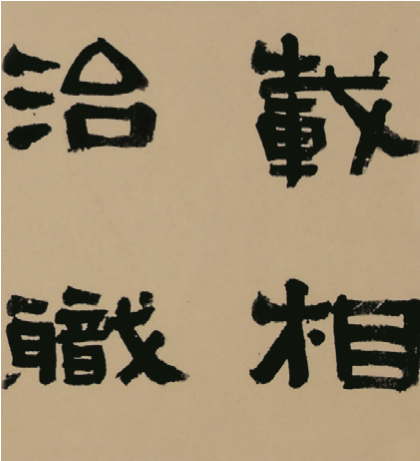 載相
治職